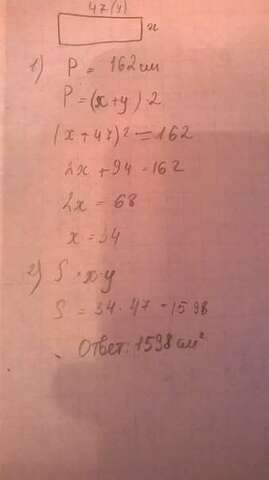 47(y)
x
1) P = 162 см
P = (x+y) · 2
(x + 47)2 = 162
2x + 94 = 162
2x = 68
x = 34
2) S = x·y
S = 34 · 47 = 1598
Ответ: 1598 см²